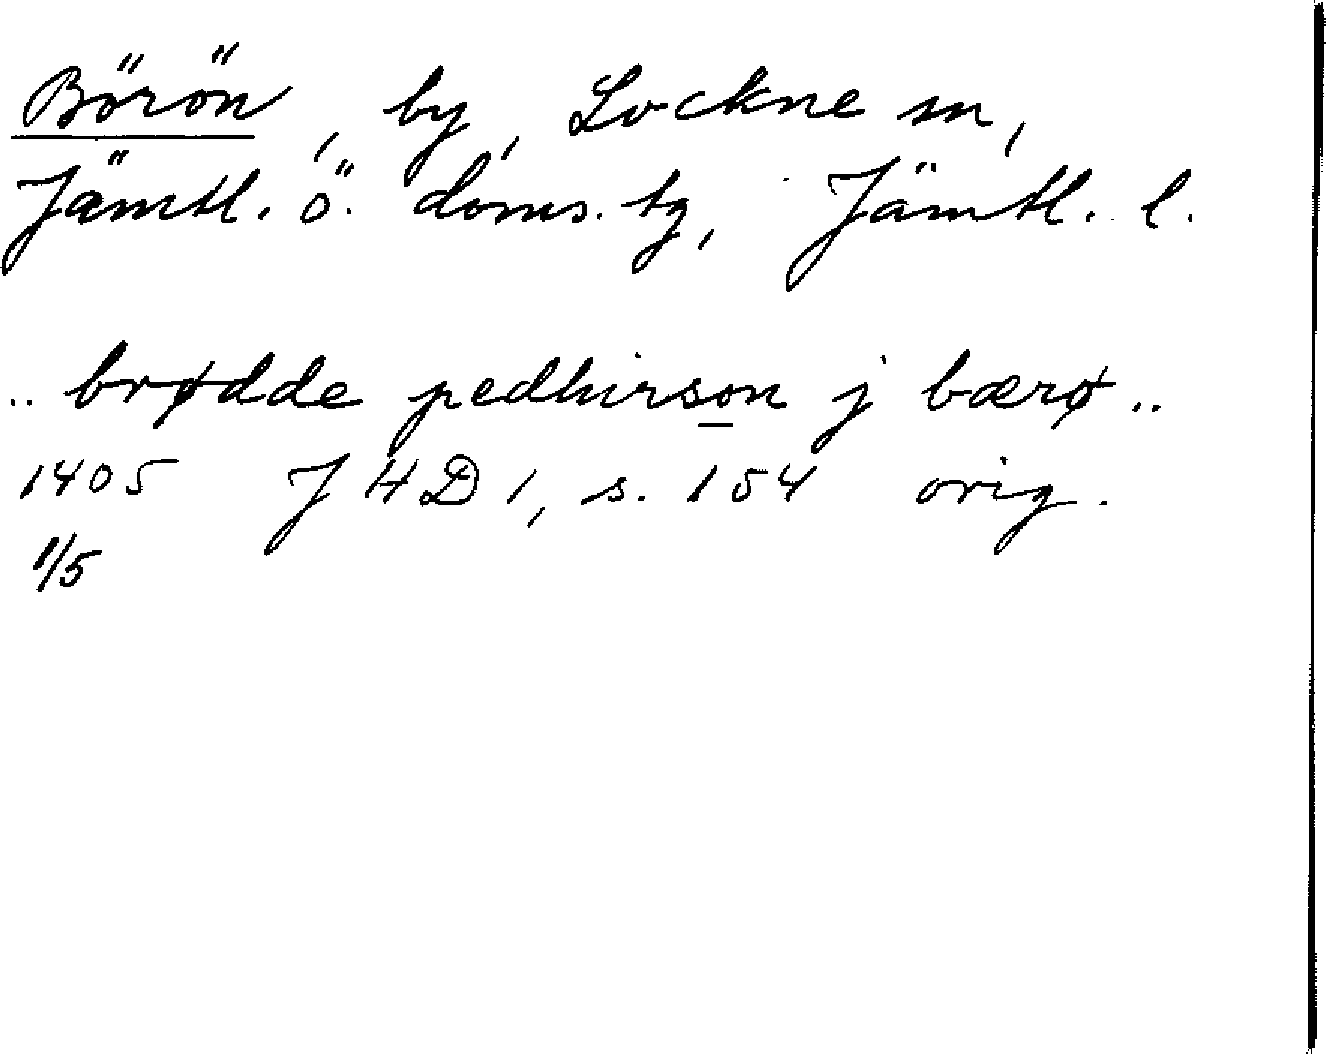 Börön, by, Lockne sn,
Jämtl. ö. doms. tg, Jämtl. l.
.. brødde pedhirson j bærø ..
1405 JHD 1, s. 154 orig.
1/5